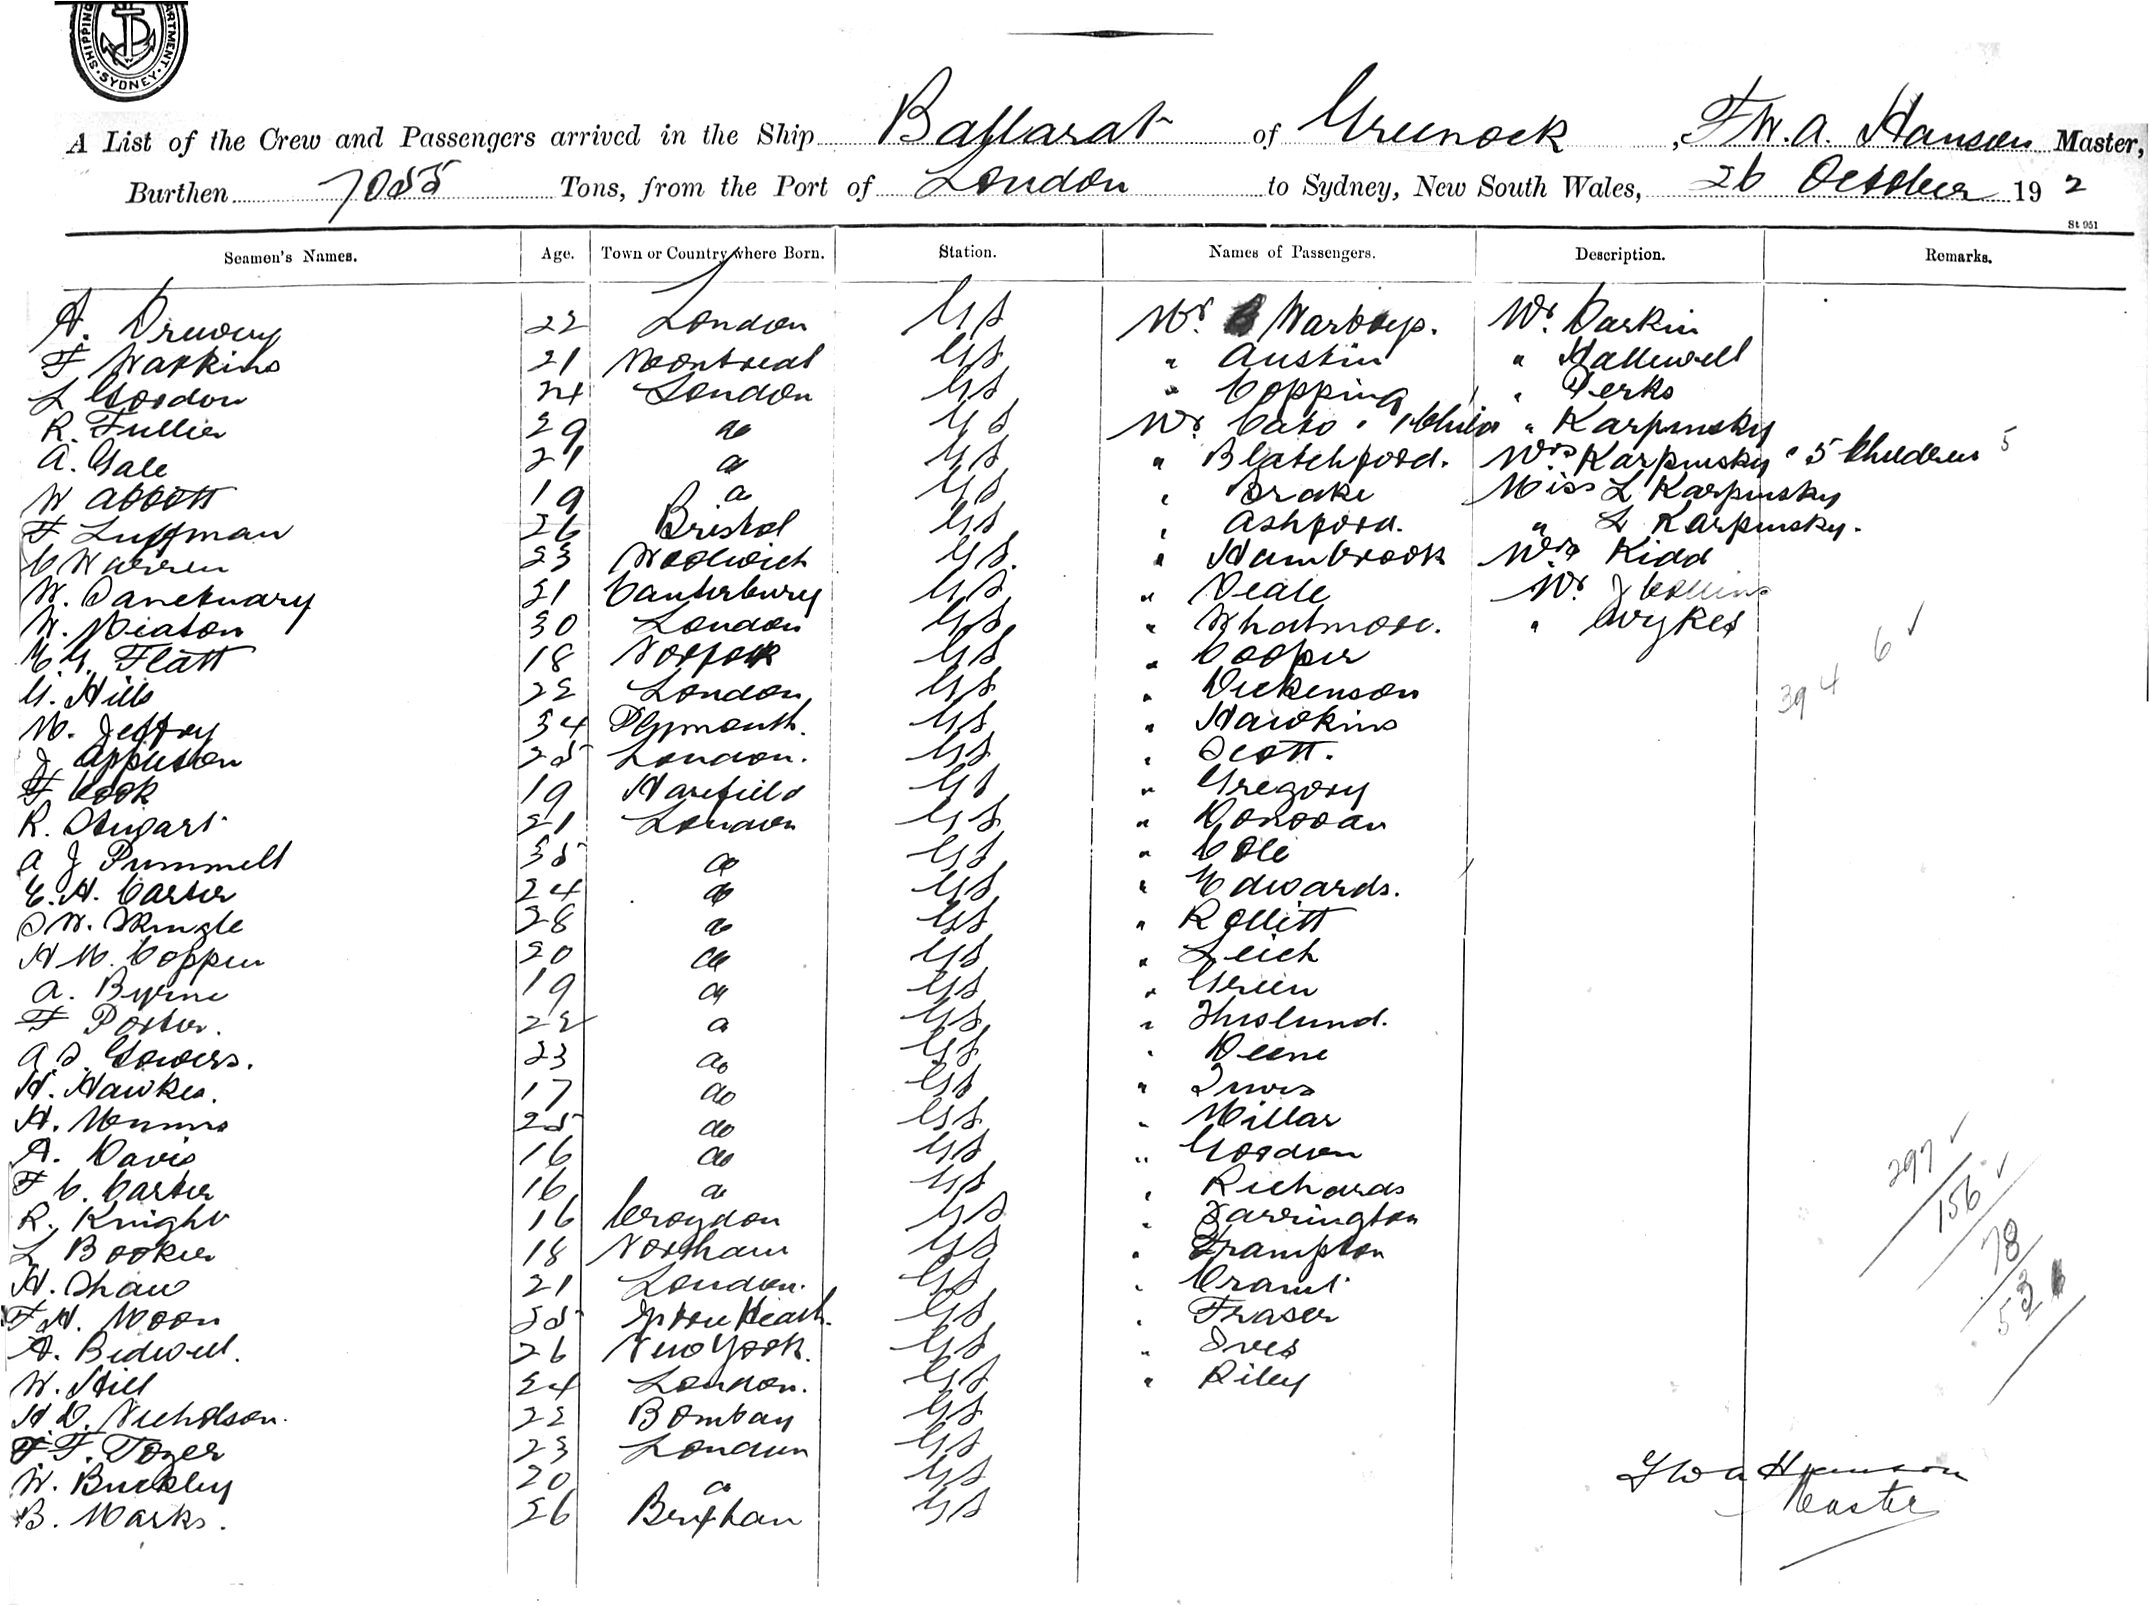 SHIPPING DEPARTMENT SYDNEY
A List of the Crew and Passengers arrived in the Ship Ballarat of Greenock, F W. A. Hanson Master,
Burthen 7055 Tons, from the Port of London to Sydney, New South Wales, 26 October 19 2
St 951
Seamen's Names. Age. Town or Country where Born. Station. Names of Passengers. Description. Remarks.
A. Druery 22 London GS Mr. Warboys. Mr. Darkin
F Watkins 21 Montreal GS " Austin " Hallewell
L Gordon 24 London GS " Copping " Perks
R. Fullier 29 do GS Mr. Cato & 1 Child " Karpinsky
A. Gale 21 do GS " Blatchford. Mrs Karpinsky & 5 Children 5
W Abbott 19 do GS " Drake Miss L Karpinsky
F Luffman 26 Bristol GS " Ashford. " L Karpinsky.
C Warren 23 Woolwich GS. " Hambrook Mrs Kidd
W. Sanctuary 21 Canterbury GS " Veale Mr. J Collins
W. Meaton 30 London GS " Whatmore. " Wykes
E. G. Flatt 18 Norfolk GS " Cooper 6
G. Hills 22 London GS " Dickenson 39 4
M. Jeffroy 34 Plymouth. GS " Hawkins
J Appleton 25 London. GS " Scott.
F Cook 19 Harefield GS " Gregory
R. Stigart 21 London GS " Donovan
A J Pummell 35 do GS " Cole
E. H. Carter 24 do GS " Edwards.
S W. Skingle 28 do GS " Rollitt
H M. Coppin 20 do GS " Leich
A. Byrne 19 do GS " Green
F Porter. 22 do GS " Thislund.
A S. Gowers. 23 do GS " Deene
H. Hawkes. 17 do GS "
H. Munns 25 do GS " Millar
A. Davis 16 do GS " Goodson 297
F C. Carter 16 do GS " Richards 156
R. Knight 16 Croydon GS " Farrington
L Booker 18 Northam GS " Frampton 78
H. Shaw 21 London. GS " 53
F H. Moon 35 Heath. GS " Fraser
A. Bidwell. 26 New York. GS " Ives
W. Hill 24 London. GS " Riley
H D. Nicholson. 22 Bombay GS
F. Tozer 23 London GS
W. Buckley 20 do GS F W A Hanson
B. Marks. 26 Brixham GS Master